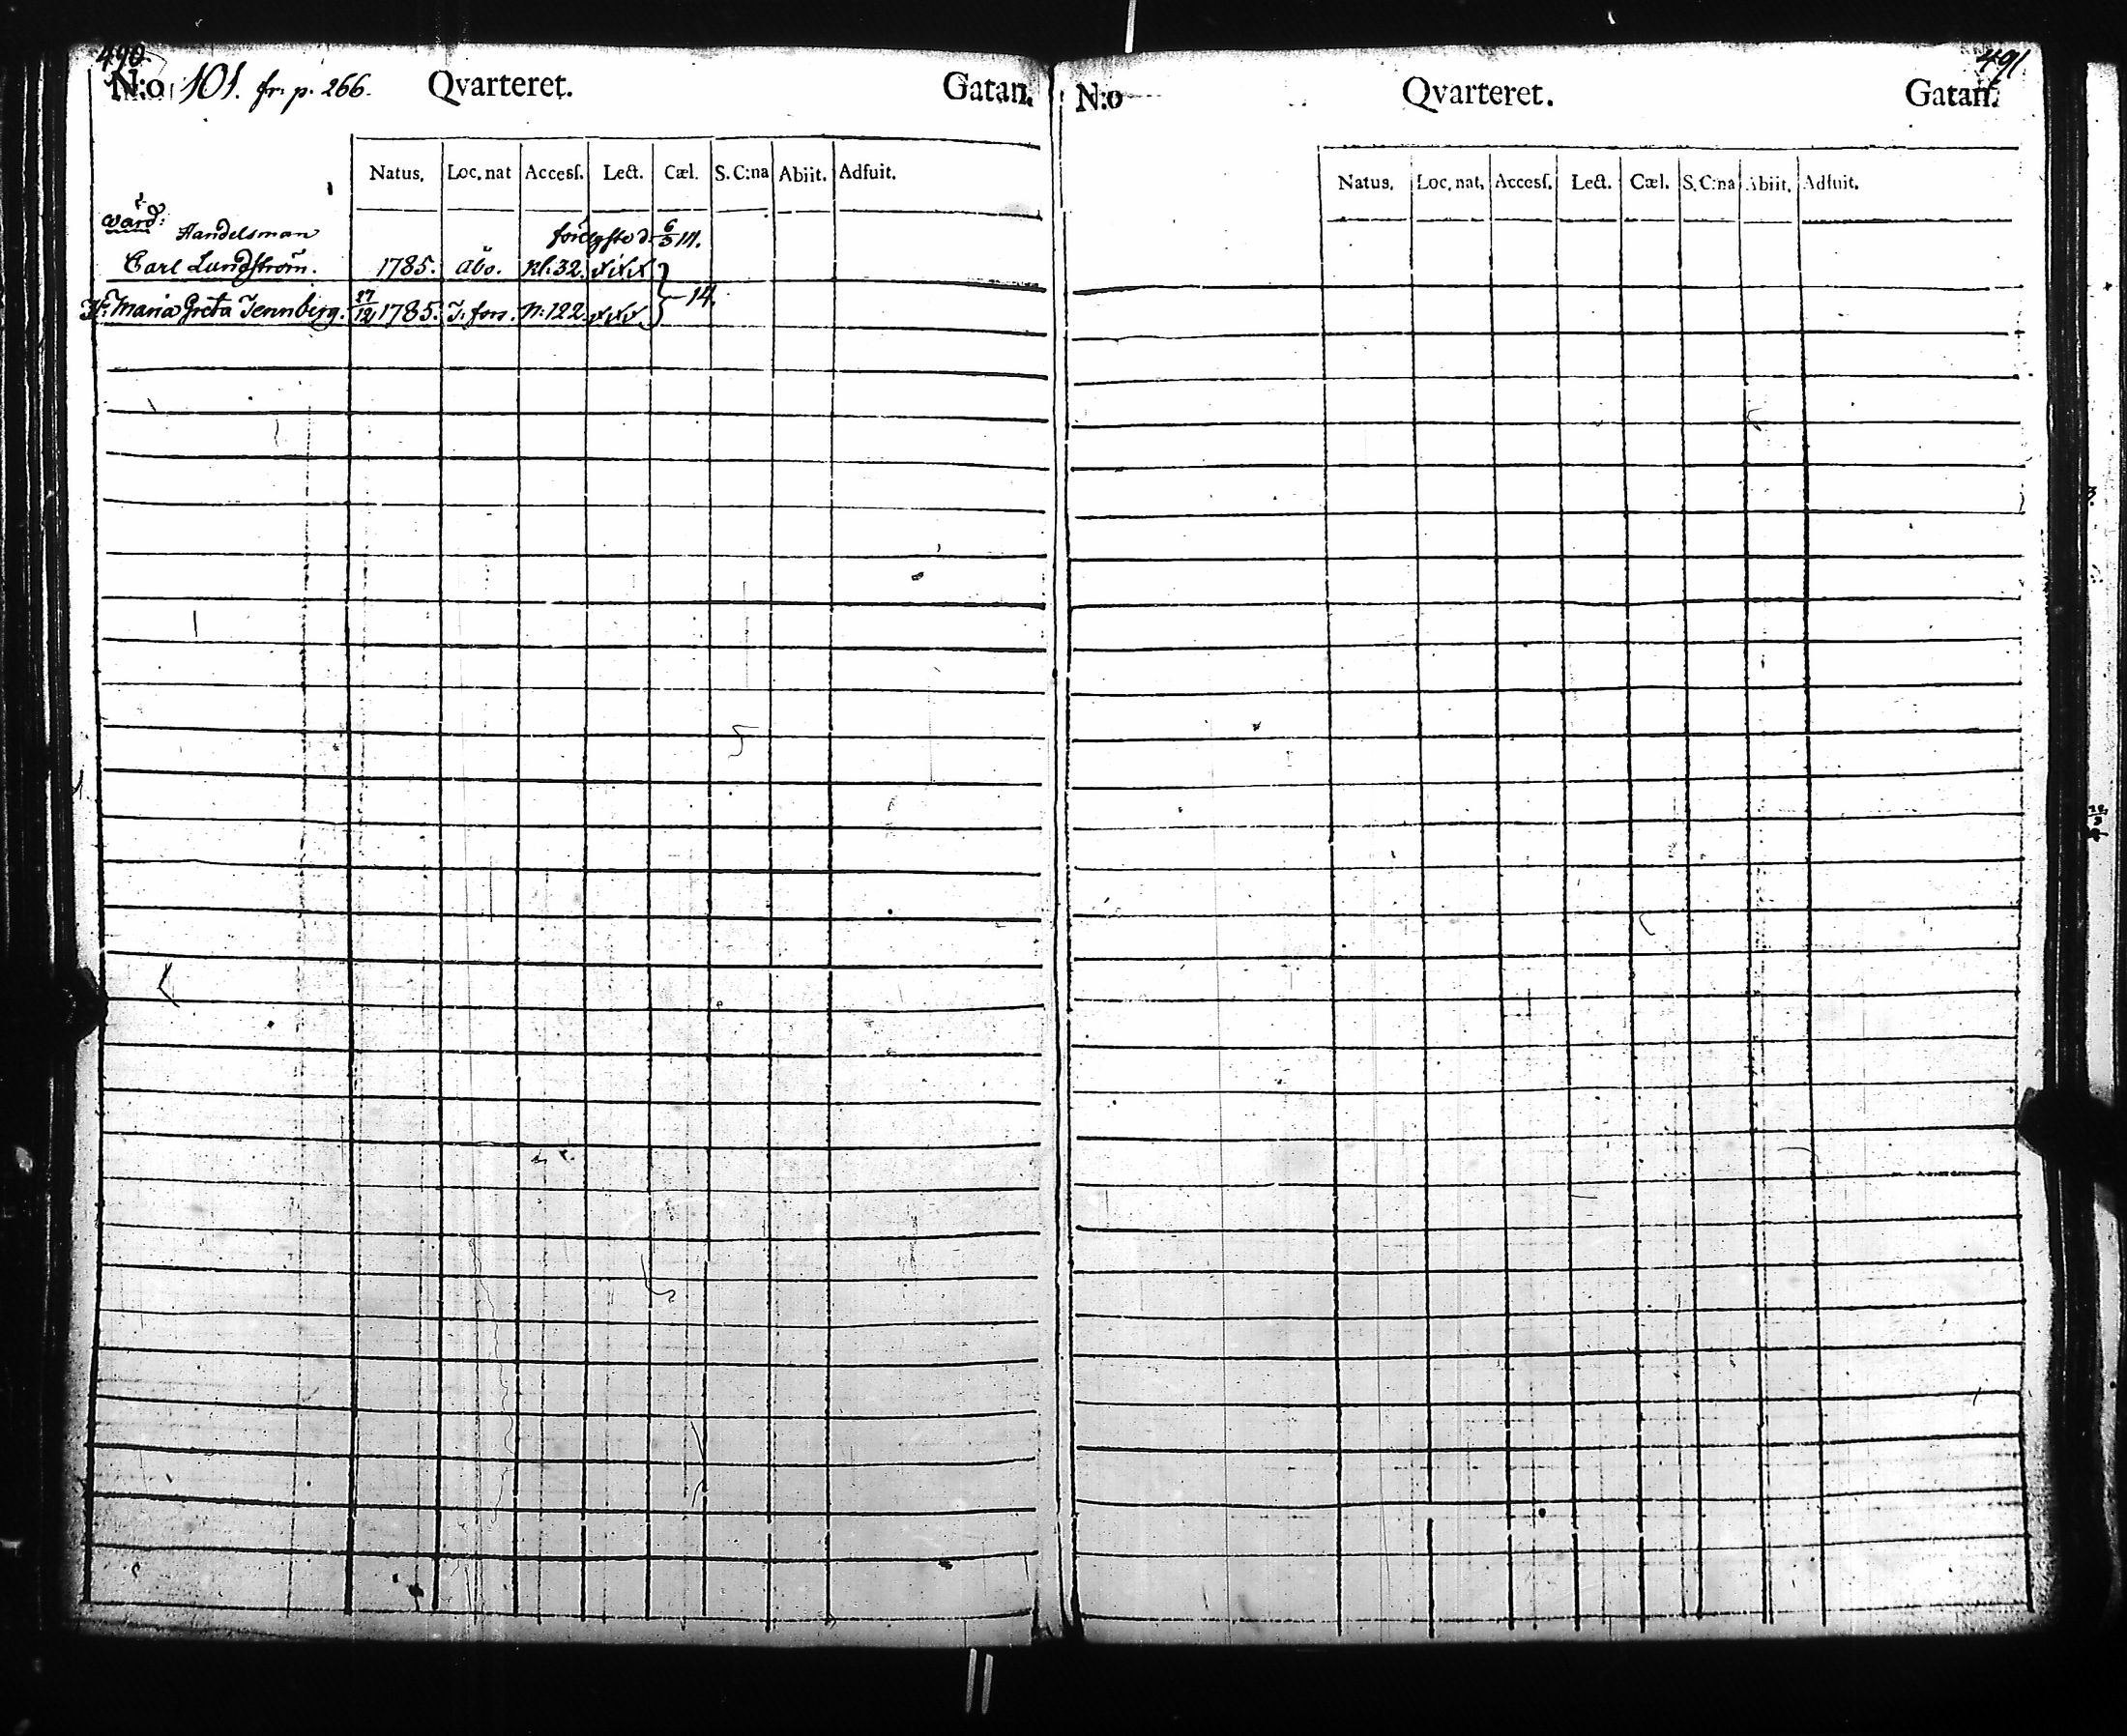 490.
N:o 101. fr. p. 266. Qvarteret. Gatan.
Natus. Loc. nat Accesſ. Lect. Cæl. S. C:na Abiit. Adfuit.
Wärd:
Handelsman d. 6/3 14.
Carl Lundström. 1785. Åbo. N:32. xxx
H:u Maria Greta Tennberg. 27/12 1785. T. fors. N:122. xxx } 14.
491
N:o Qvarteret. Gatan.
Natus. Loc. nat. Accesſ. Lect. Cæl. S. C:na Abiit. Adfuit.